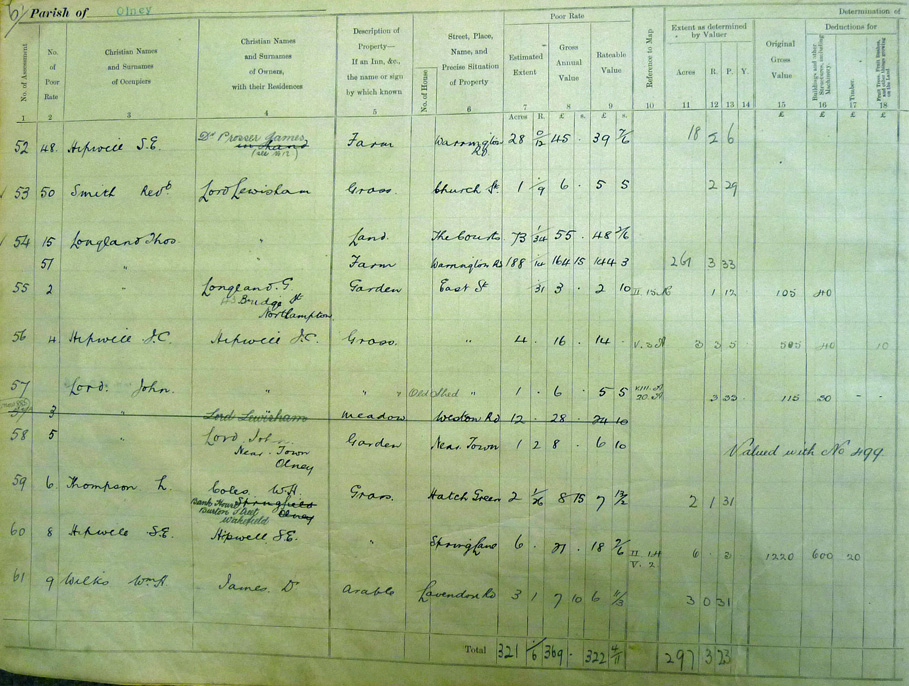 6 Parish of Olney
Poor Rate
Determination of
No. of Assessment
No. of Poor Rate
Christian Names and Surnames of Occupiers
Christian Names and Surnames of Owners, with their Residences
Description of Property— If an Inn, &c., the name or sign by which known
No. of House
Street, Place, Name, and Precise Situation of Property
Estimated Extent
Gross Annual Value
Rateable Value
Reference to Map
Extent as determined by Valuer
Original Gross Value
Deductions for
Buildings and other Structures, including Machinery.
Timber.
1 2 3 4 5 6 7 8 9 10 11 12 13 14 15 16 17 18
Acres R. £ s. £ s. Acres R. P. Y. £ £ £ £
52 48 Hipwell S.E. Dr Prosser James Farm Warrington Rd 28 0/12 45 . 39 7/6 18 2 6
in hand
53 50 Smith Revb Lord Lewisham Grass. Church St. 1 1/9 6 . 5 5 2 29
54 15 Longland Thos. " Land. The Courts 73 1/34 55 . 48 2/6
57 " Farm Warrington Rd 188 1/14 164 15 144 3 261 3 33
55 2 Longland. G. Garden East St 31 3 . 2 10 II. 15. 1 12 105 40
Bridge St
Northampton
56 4 Hipwell J.C. Hipwell J.C. Grass. " 4 . 16 . 14 . V. 3 3 3 5 40 10
57 Lord. John. " " Old Shed 1 . 6 . 5 5 3 33 115 50 - -
3 " Lord Lewisham Meadow Weston Rd 12 . 28 . 24 10
58 5 " Lord. John Garden Near Town 1 2 8 . 6 10 Valued with No 499.
Near Town
Olney
59 6 Thompson L. Coles. W.H. Grass. Hatch Green 2 1/26 8 15 7 13/2 2 1 31
Bank House Springfield
Burton Street Olney
Wakefield
60 8 Hipwell S.E. Hipwell S.E. " Spring Lane 6 . 21 . 18 2/6 II 14 6 . 31 1220 600 20
V. 2.
61 9 Wilks Wm A. James. Dr Arable Lavendon Rd 3 1 7 10 6 11/3 3 0 31
Total 321 1/6 369 . 322 4/11 297 3 23